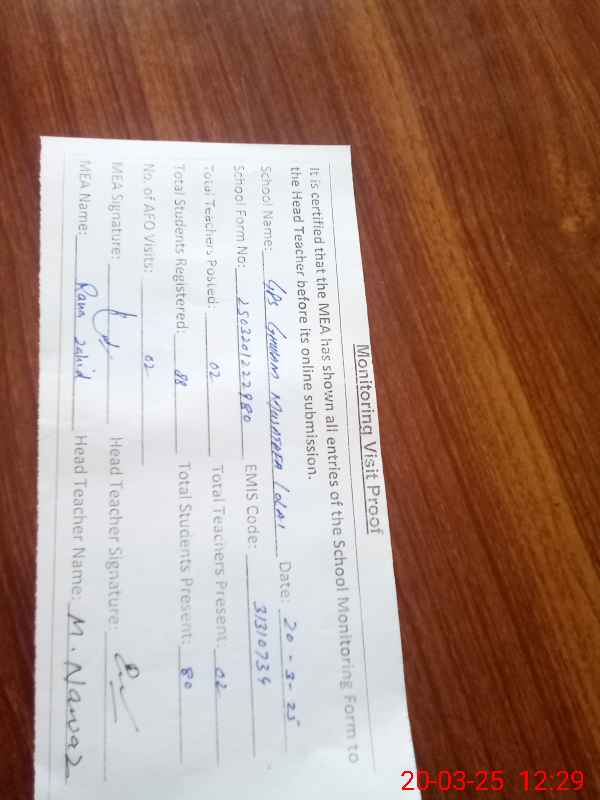 Monitoring Visit Proof
It is certified that the MEA has shown all entries of the School Monitoring Form to
the Head Teacher before its online submission.
School Name: GPS Date: 20-3-25
School Form No: 2503201222980 EMIS Code: 31310734
Total Teachers Posted: 02 Total Teachers Present: 02
Total Students Registered: 88 Total Students Present: 80
No. of AFO Visits: 02
MEA Signature: Head Teacher Signature:
MEA Name: Rana Zahid Head Teacher Name: M. Nawaz
20-03-25 12:29